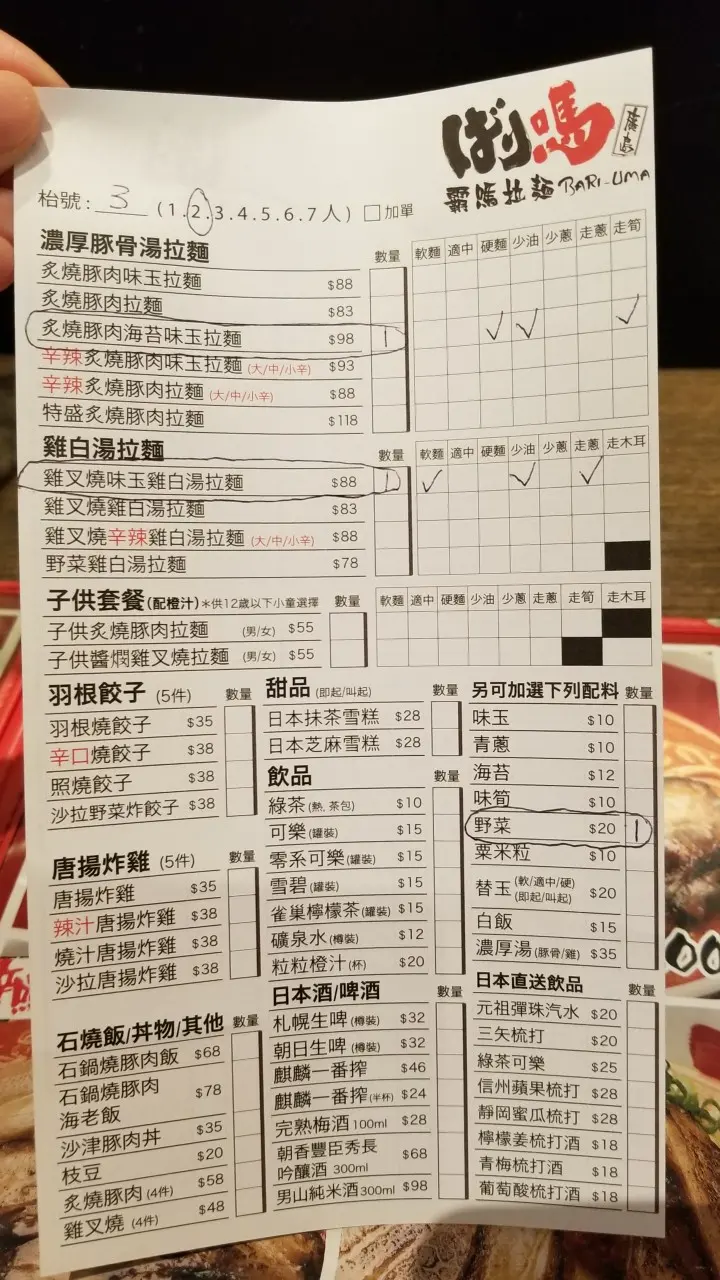 ばり嗎
廣島
霸嗎拉麵 BARI-UMA
枱號: 3 (1.2.3.4.5.6.7人) □加單
濃厚豚骨湯拉麵 數量 軟麵 適中 硬麵 少油 少蔥 走蔥 走筍
炙燒豚肉味玉拉麵 $88
炙燒豚肉拉麵 $83
炙燒豚肉海苔味玉拉麵 $98 1 ✓ ✓ ✓
辛辣炙燒豚肉味玉拉麵 (大/中/小辛) $93
辛辣炙燒豚肉拉麵 (大/中/小辛) $88
特盛炙燒豚肉拉麵 $118
雞白湯拉麵 數量 軟麵 適中 硬麵 少油 少蔥 走蔥 走木耳
雞叉燒味玉雞白湯拉麵 $88 1 ✓ ✓ ✓
雞叉燒雞白湯拉麵 $83
雞叉燒辛辣雞白湯拉麵 (大/中/小辛) $88
野菜雞白湯拉麵 $78
子供套餐 (配橙汁) *供12歲以下小童選擇 數量 軟麵 適中 硬麵 少油 少蔥 走蔥 走筍 走木耳
子供炙燒豚肉拉麵 (男/女) $55
子供醬燜雞叉燒拉麵 (男/女) $55
羽根餃子 (5件) 數量
羽根燒餃子 $35
辛口燒餃子 $38
照燒餃子 $38
沙拉野菜炸餃子 $38
唐揚炸雞 (5件) 數量
唐揚炸雞 $35
辣汁唐揚炸雞 $38
燒汁唐揚炸雞 $38
沙拉唐揚炸雞 $38
石燒飯/丼物/其他 數量
石鍋燒豚肉飯 $68
石鍋燒豚肉
海老飯 $78
沙津豚肉丼 $35
枝豆 $20
炙燒豚肉 (4件) $58
雞叉燒 (4件) $48
甜品 (即起/叫起) 數量
日本抹茶雪糕 $28
日本芝麻雪糕 $28
飲品 數量
綠茶 (熱, 茶包) $10
可樂 (罐裝) $15
零系可樂 (罐裝) $15
雪碧 (罐裝) $15
雀巢檸檬茶 (罐裝) $15
礦泉水 (樽裝) $12
粒粒橙汁 (杯) $20
日本酒/啤酒 數量
札幌生啤 (樽裝) $32
朝日生啤 (樽裝) $32
麒麟一番搾 $46
麒麟一番搾 (半杯) $24
完熟梅酒 100ml $28
朝香豐臣秀長
吟釀酒 300ml $68
男山純米酒 300ml $98
另可加選下列配料 數量
味玉 $10
青蔥 $10
海苔 $12
味筍 $10
野菜 $20 1
粟米粒 $10
替玉 (軟/適中/硬) (即起/叫起) $20
白飯 $15
濃厚湯 (豚骨/雞) $35
日本直送飲品 數量
元祖彈珠汽水 $20
三矢梳打 $20
綠茶可樂 $25
信州蘋果梳打 $28
靜岡蜜瓜梳打 $28
檸檬姜梳打酒 $18
青梅梳打酒 $18
葡萄酸梳打酒 $18